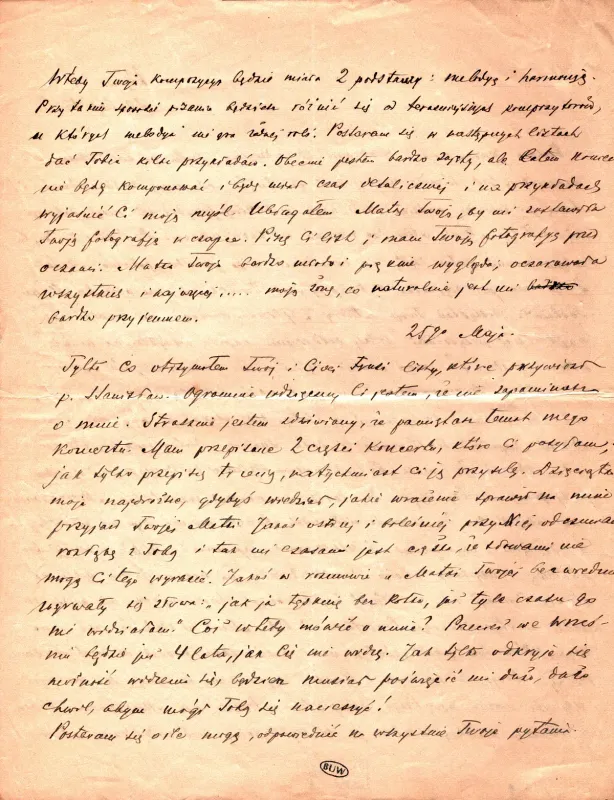 Wtedy Twoja kompozycja będzie miała 2 podstawy: melodyę i harmonię.
Przy takim sposobie pisania będziesz różnić się od kompozytorów,
u których melodya nie gra żadnej roli. Postaram się w następnych listach
dać Tobie kilka przykładów. Obecnie jestem bardzo zajęty, ale latem
nie będę komponować i będę miał czas i na przykładach
wyjaśnić Ci moją myśl. Ubłagałem Matkę Twoją, by mi zostawiła
Twoją fotografię w czapce. Piszę Ci list i mam Twoją fotografię przed
oczami. Matka Twoja bardzo młodo i pięknie wygląda; oczarowała
wszystkich i najwięcej..... moją żonę, co naturalnie jest mi
bardzo przyjemnem.
25go Maja.
Tylko co otrzymałem Twój i Cioci listy, które przywiózł
p. Stanisław. Ogromnie wdzięczny Ci jestem, że nie zapominasz
o mnie. Strasznie jestem zdziwiony, że pamiętasz temat mego
koncertu. Mam przepisane 2 części koncertu, które Ci posyłam,
jak tylko przepiszę trzecią, natychmiast Ci ją przyszlę. Dziecię
moje najdroższe, gdybyś wiedział, jakie wrażenie sprawił na mnie
przyjazd Twojej Matki. Jakoś ostrzej i boleśniej przy Niej odczuwam
rozłąkę z Tobą i tak mi czasami jest ciężko, że słowami nie
mogę Ci tego wyrazić. Jakoś w rozmowie u Matki Twojej bezwiednie
wyrwały się słowa: "jak ja tęsknię bez Kotka, już tyle czasu go
nie widziałam." Cóż wtedy mówić o mnie? Przecież we wrześ-
niu będzie już 4 lata, jak Cię nie widzę. Jak tylko odkryje się
możność widzenia się, będziesz musiał poświęcić mi dużo, dużo
chwil, abym mógł Tobą się nacieszyć!
Postaram się o ile mogę, odpowiedzieć na wszystkie Twoje pytania.
BUW